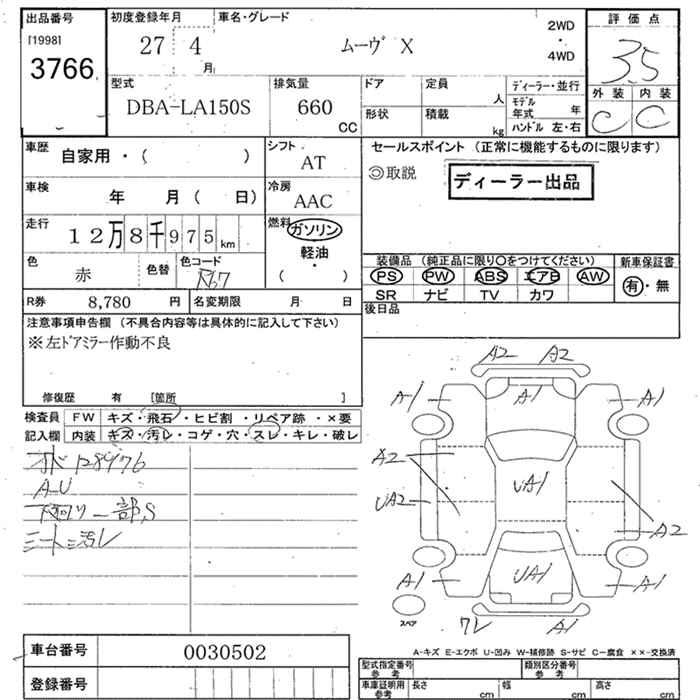 出品番号 初度登録年月 車名・グレード 評価点
[1998]
3766
27 4 月 ムーヴ X 2WD ・ 4WD
3.5
型式 排気量 ドア 定員 人 ディーラー・並行
DBA-LA150S 660 CC
形状 積載 kg モデル年式 年
ハンドル 左・右
外装 内装
C C
車歴 自家用・( )
シフト AT
セールスポイント (正常に機能するものに限ります)
◎取説 ディーラー出品
車検 年 月( 日)
冷房 AAC
走行 12万8千975km
燃料 ガソリン
軽油・
( )
色 赤 色替 色コード R67
装備品 (純正品に限り○をつけてください) 新車保証書
PS PW ABS エアB AW
SR ナビ TV カワ
有・無
R券 8,780 円 名変期限 月 日
後日品
注意事項申告欄 (不具合内容等は具体的に記入して下さい)
※左ドアミラー作動不良
修復歴 有 [箇所 ]
検査員 FW キズ・飛石・ヒビ割・リペア跡・×要
記入欄 内装 キズ・汚レ・コゲ・穴・スレ・キレ・破レ
A-U
下回リ一部S
シート汚レ
A2 A2
A1 A1 A1
A2
UA1
UA2
A2
A1 UA1 A1
スペア
ワレ A1
車台番号 0030502
登録番号
A-キズ E-エクボ U-凹み W-補修跡 S-サビ C-腐食 ××-交換済
型式指定番号 参考 類別区分番号 参考
車庫証明用 参考 長さ cm 幅 cm 高さ cm